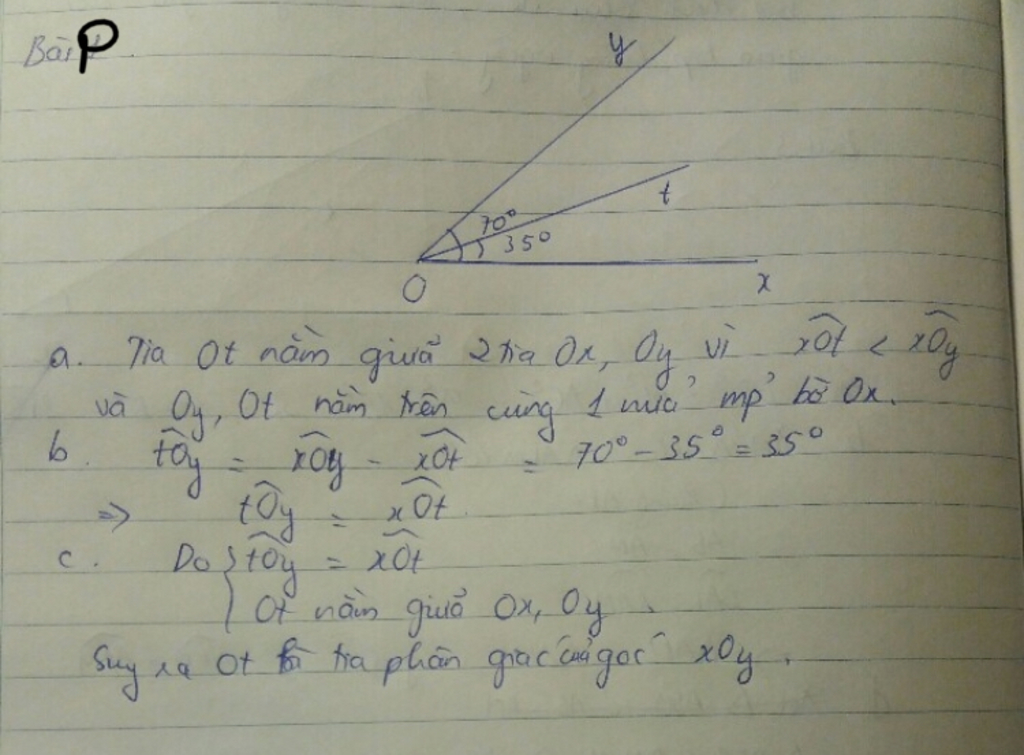 Bài P
y
t
70°
35°
O
x
a. Tia Ot nằm giữa 2 tia Ox, Oy vì xOt < xOy
và Oy, Ot nằm trên cùng 1 nửa mp bờ Ox.
b. tOy = xOy - xOt = 70° - 35° = 35°
=> tOy = xOt
c. Do { tOy = xOt
Ot nằm giữa Ox, Oy.
Suy ra Ot là tia phân giác của góc xOy.